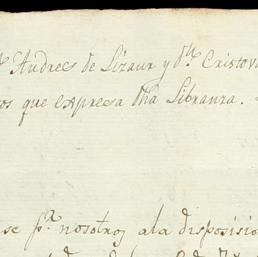 Andrees de Lizaur y dⁿ Cristov
os que expresa dha Libranza.
se pʳ nosotros ala disposisio